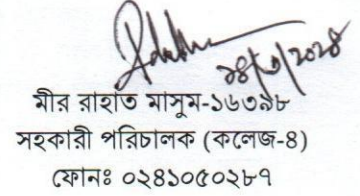 ১৪/৩/২০২৪
মীর রাহাত মাসুম-১৬৩৯৮
সহকারী পরিচালক (কলেজ-৪)
ফোনঃ ০২৪১০৫০২৮৭